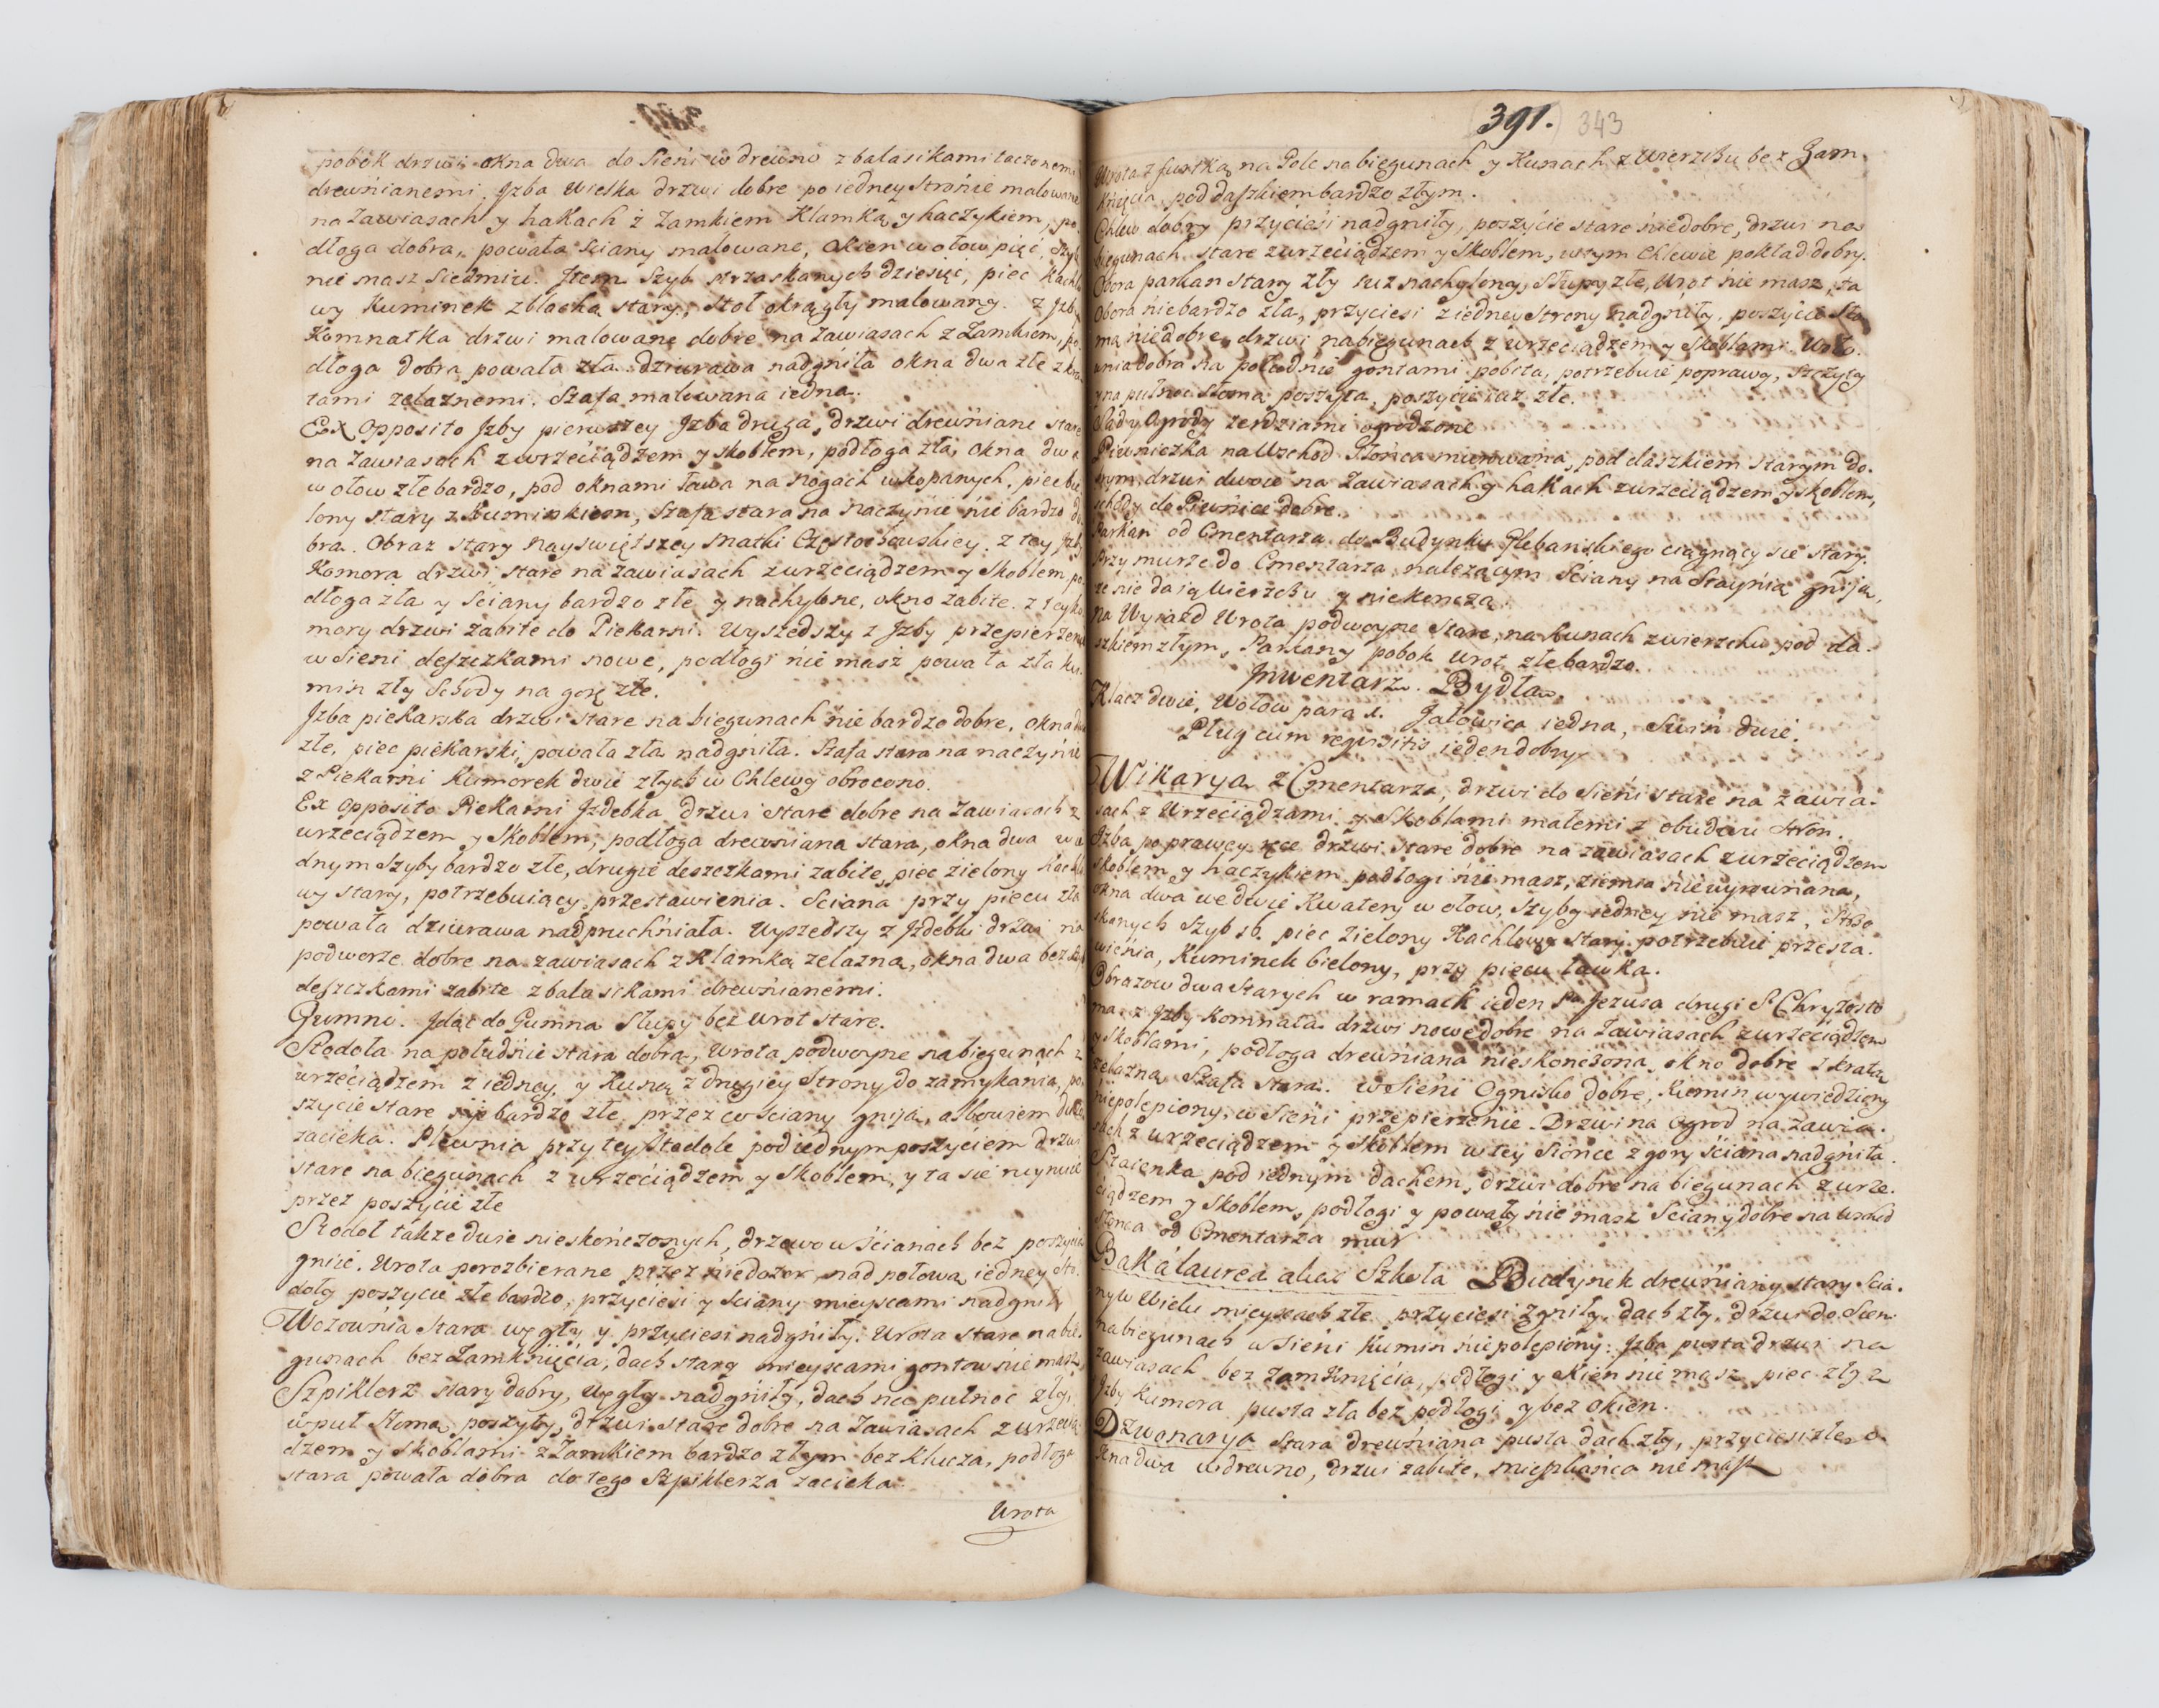 pobok drzwi okna dwa do Sieni w drewno z balasikami toczonemi
drewnianemi. Jzba Wielka drzwi dobre po iedney Stronie malowane
na Zawiasach y hakach z Zamkiem Klamką y haczykiem, po-
dłoga dobra, powała Sciany malowane, Okien w ołow pięć, Szyb
nie masz Siedmiu. Jtem Szyb strzaskanych dziesięć, piec Kachlo
wy Kuminek z blachą stary, Stoł okrągły malowany. z Jzby
Komnatka drzwi malowane dobre na Zawiasach z Zamkiem, po-
dłoga dobra powała zła dziurawa nadgniła okna dwa złe z kra
tami zelaznemi. Szafa malowana iedna.
Ex Opposito Jzby pierwszey Jzba druga, drzwi drewniane stare
na Zawiasach z wrzeciądzem y skoblem, podłoga zła, okna dwa
w ołow złe bardzo, pod oknami Ława na nogach wkopanych, piec bie
lony stary z Kuminkiem, Szafa stara na naczynie nie bardzo do
bra. Obraz stary Nayswiętszey Matki Częstochowskiey. z tey Jzby
Komora drzwi stare na Zawiasach z wrzeciądzem y Skoblem, po-
dłoga zła y Sciany bardzo złe y nachylone, okno zabite. z tey ko
mory drzwi zabite do Piekarni. Wyszedszy z Jzby przepierzenie
w Sieni deszczkami nowe, podłogi nie masz powała zła ku-
min zły Schody na gorę złe.
Jzba piekarska drzwi stare na biegunach nie bardzo dobre, okna dwa
złe, piec piekarski, powała zła nadgniła. Szafa stara na naczynie
z Piekarni Kumorek dwie złych w Chlewy obrocono.
Ex Opposito Piekarni Jzdebka drzwi stare dobre na Zawiasach z
wrzeciądzem y Skoblem, podłoga drewniana stara, okna dwa w ie
dnym Szyby bardzo złe, drugie deszczkami zabite, piec zielony Kachlo
wy stary, potrzebuiący przestawienia. Sciana przy piecu zła
powała dziurawa nadpruchniała. Wyszedszy z Jzdebki drzwi na
podworze dobre na zawiasach z Klamką zelazną, okna dwa bez szyb
deszczkami zabite z balasikami drewnianemi.
Gumno. Jdąc do Gumna Słupy bez Wrot stare.
Stodoła na południe stara dobra, Wrota podwoyne na biegunach z
wrzeciądzem z iedney, y Kuną z drugiey Strony do zamykania, po-
szycie stare bardzo złe, przez co Sciany gniją, albowiem
zacieka. Plewnia przy tey Stodole pod iednym poszyciem drzwi
stare na biegunach z wrzeciądzem y Skoblem, y ta sie ruynuie
przez poszycie złe
Stodoł takze dwie nieskończonych, drzewo w Scianach bez poszycia
gniie. Wrota porozbierane przez niedozor, nad połową iedney Sto-
doły poszycie złe bardzo, przyciesi y Sciany mieyscami nadgniły
Wozownia Stara węgły y przyciesi nadgniły. Wrota stare na bie-
gunach bez Zamknięcia, dach stary mieyscami gontow nie masz
Szpiklerz stary dobry, Węgły nadgniły, dach na pułnoc zły,
w puł Słomą poszyty, drzwi stare dobre na Zawiasach z wrzecią-
dzem y Skoblami z Zamkiem bardzo złym bez Klucza, podłoga
stara powała dobra do tego Szpiklerza zacieka
Wrota
391. 343
Wrota z furtką na Pole na biegunach y Kunach z Wierzchu bez Zam-
knięcia pod daszkiem bardzo złym.
Chlew dobry przyciesi nadgniły, poszycie stare niedobre, drzwi na
biegunach stare z wrzeciądzem y Skoblem, w tym Chlewie pokład dobry.
Obora parkan stary zły iuz nachylony, Słupy złe, Wrot nie masz, ta
Obora niebardzo zła, przyciesi z iedney Strony nadgniły, poszycie Sło
mą niedobre, drzwi na biegunach z wrzeciądzem y Skoblami. Woło-
wnia dobra na południe gontami pobita, potrzebuie poprawy, Szczyty
y na pułnoc Słomą poszyta, poszycie iuz złe.
Sad y Ogrody zerdziami ogrodzone
Piwniczka na Wschod Słońca murowana, pod daszkiem starym do-
brym, drzwi dwoie na Zawiasach y hakach z wrzeciądzem y skoblem,
schody do Piwnice dobre.
Parkan od Cmentarza do Budynku Plebanskiego ciągnący sie stary.
Przy murze do Cmentarza nalezącym Sciany na Staynią gniją,
ze nie daią Wierzchu y niekonczą.
Na Wyiazd Wrota podwoyne Stare, na Kunach z wierzchu pod da-
szkiem złym, Parkany pobok Wrot złe bardzo.
Jnwentarz Bydła
Klacz dwie, Wołow para 1. Jałowica iedna, Swiń dwie.
Pług cum requisitis ieden dobry
Wikarya z Cmentarza, drzwi do Sieni stare na zawia-
sach z Wrzeciądzami y Skoblami małemi z obudwu Stron.
Jzba po prawey ręce drzwi stare dobre na zawiasach z wrzeciądzem
skoblem y haczykiem podłogi nie masz, ziemia niewyrownana,
okna dwa we dwie Kwatery w ołow, Szyby iedney nie masz,
skanych Szyb 16. piec zielony Kachlowy stary potrzebuie przesta-
wienia, Kuminek bielony, przy piecu ławka.
Obrazow dwa Starych w ramach ieden Pa Jezusa drugi S Chryzosto
ma, z Jzby Komnata drzwi nowe dobre na Zawiasach z wrzeciądzem
y skoblami, podłoga drewniana nieskończona, okno dobre z kratą
zelazną Szafa stara. w Sieni Ognisko dobre, Kumin wywiedziony
niepolepiony, w Sieni przepierzenie. Drzwi na Ogrod na Zawia-
sach z wrzeciądzem y Skoblem w tey Sionce z gory Sciana nadgniła.
Staienka pod iednym dachem, drzwi dobre na biegunach z wrze-
ciądzem y Skoblem, podłogi y powały nie masz Sciany dobre na Wschod
Słonca od Cmentarza mur
Bakalaurea alias Szkoła Budynek drewniany stary Scia-
ny w Wielu mieyscach złe przyciesi zgniły, dach zły, drzwi do Sieni
na biegunach w Sieni Kumin niepolepiony. Jzba pusta drzwi na
zawiasach bez zamknięcia, podłogi y okien nie masz piec zły z
Jzby Kumora pusta zła bez podłogi y bez okien.
Dzwonarya stara drewniana pusta dach zły, przyciesi złe o-
kna dwa w drewno, drzwi zabite, mieszkańca nie masz